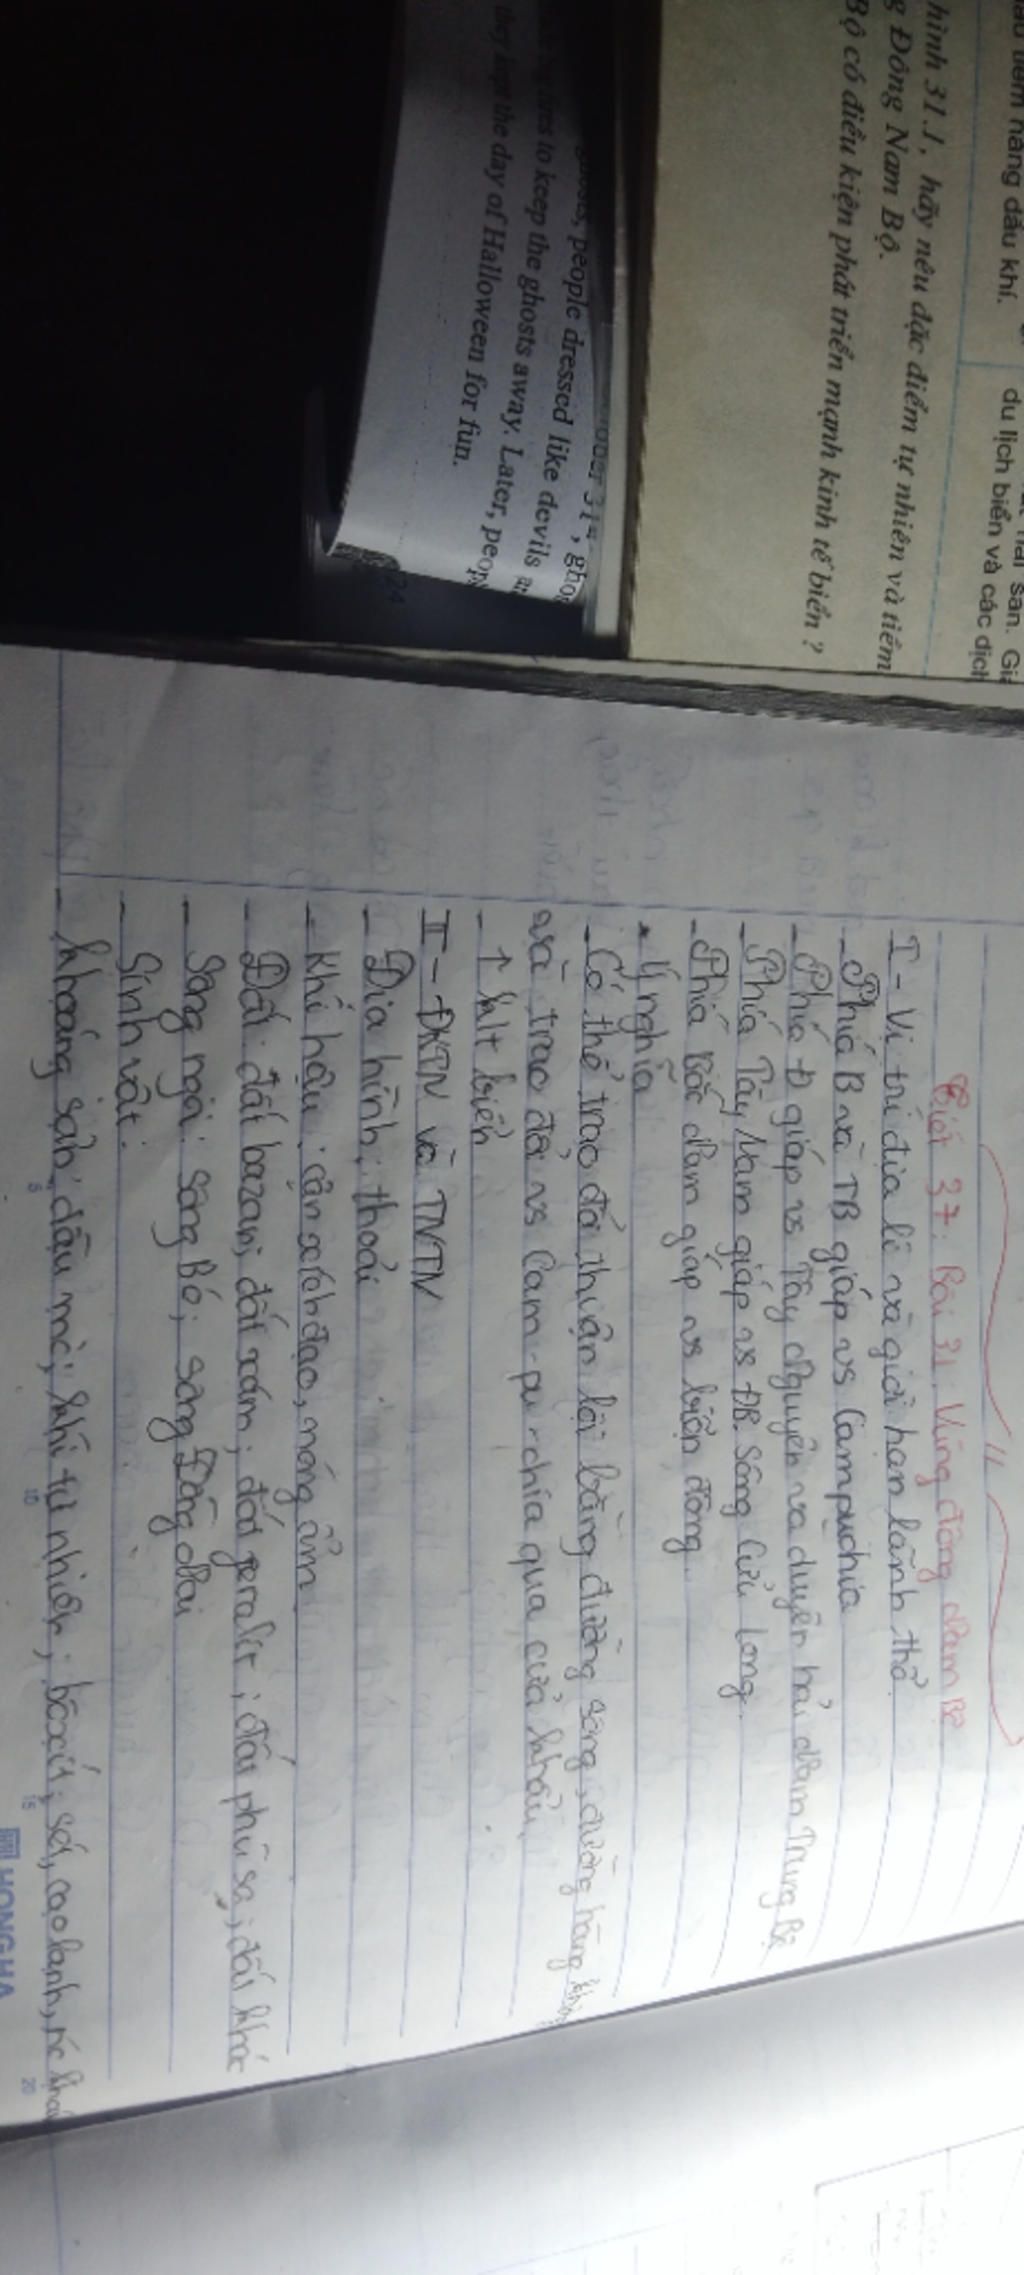 nàng dầu khí.
du lịch biển và các dịch
hình 31.1, hãy nêu đặc điểm tự nhiên và tiềm
g Đông Nam Bộ.
Bộ có điều kiện phát triển mạnh kinh tế biển ?
people dressed like devils
to keep the ghosts away. Later, peop
they kept the day of Halloween for fun.
24
Tiết 37: Bài 31: Vùng đông Nam Bộ
I - Vị trí địa lí và giới hạn lãnh thổ
- Phía B và TB giáp vs Campuchia
- Phía Đ giáp vs Tây Nguyên và duyên hải Nam Trung Bộ
- Phía Tây Nam giáp vs ĐB. Sông Cửu Long.
- Phía Bắc Nam giáp vs biển đông.
* Ý nghĩa
- Có thể trao đổi thuận lợi bằng đường song, đường hàng không
và trao đổi vs Cam-pu-chia qua cửa khẩu
- ↑ kt biển
II - ĐKTN và TNTN
- Địa hình: thoải
- Khí hậu: cận xích đạo, nóng ẩm
- Đất: đất bazan; đất xám; đất feralit; đất phù sa; đất khác
- Sông ngòi: sông Bé; sông Đồng Nai
- Sinh vật:
- khoáng sản: dầu mỏ; khí tự nhiên; bôxít; sét, cao lanh, nc khoá
5 10 15 20
HONG HA